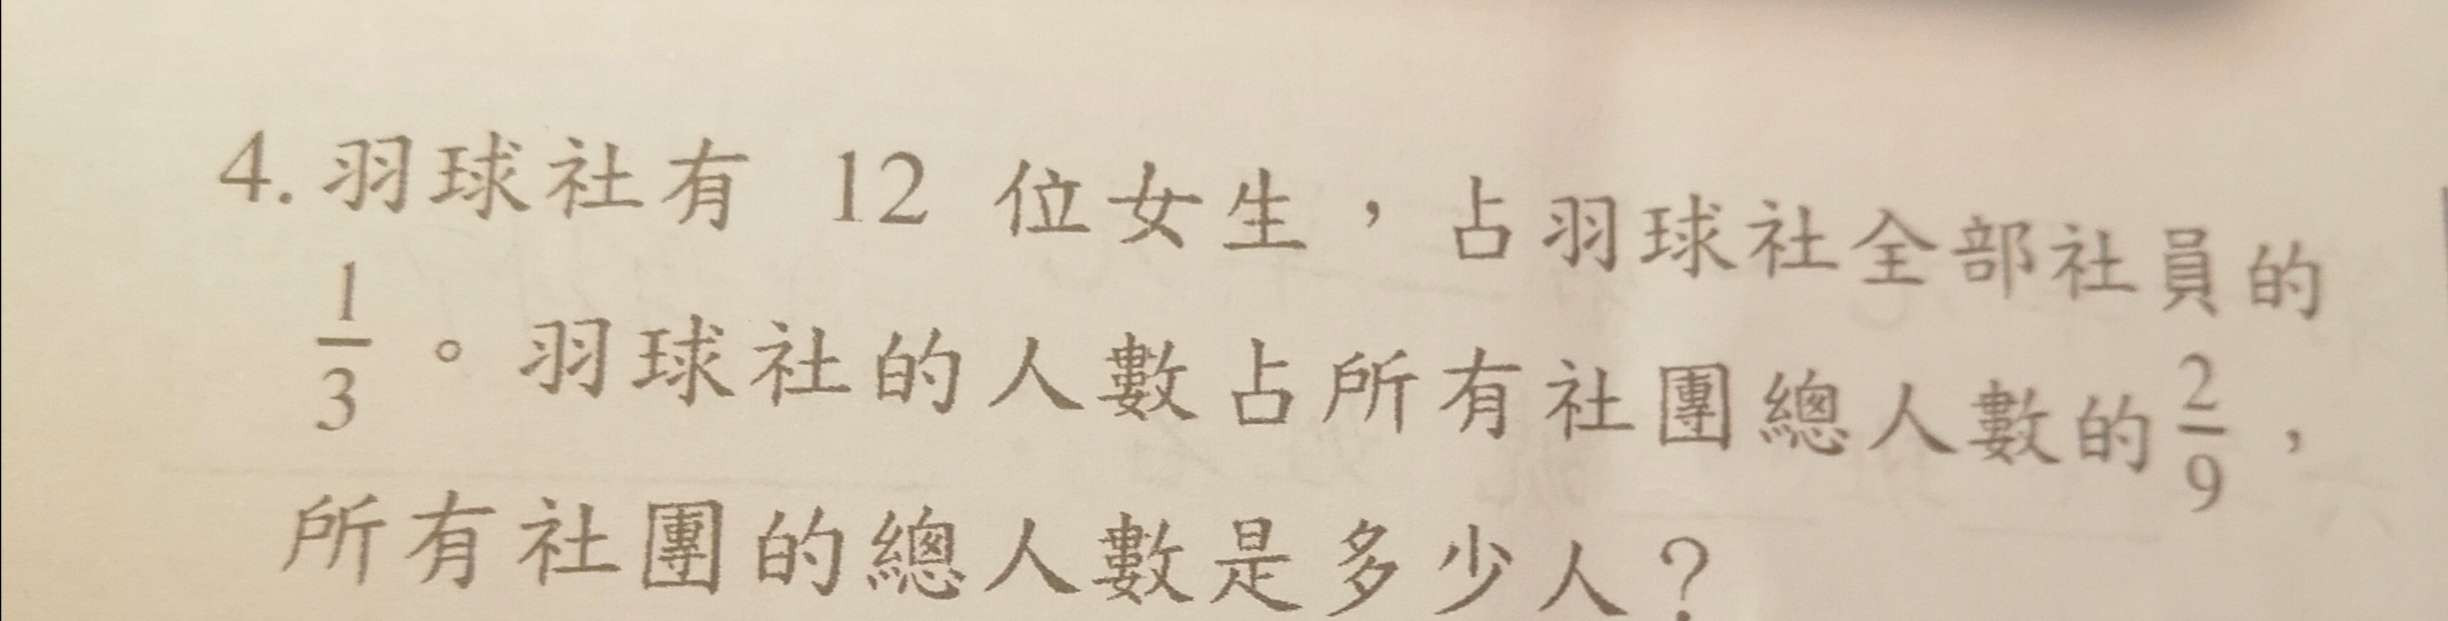 4. 羽球社有 12 位女生，占羽球社全部社員的
1/3。羽球社的人數占所有社團總人數的2/9，
所有社團的總人數是多少人？